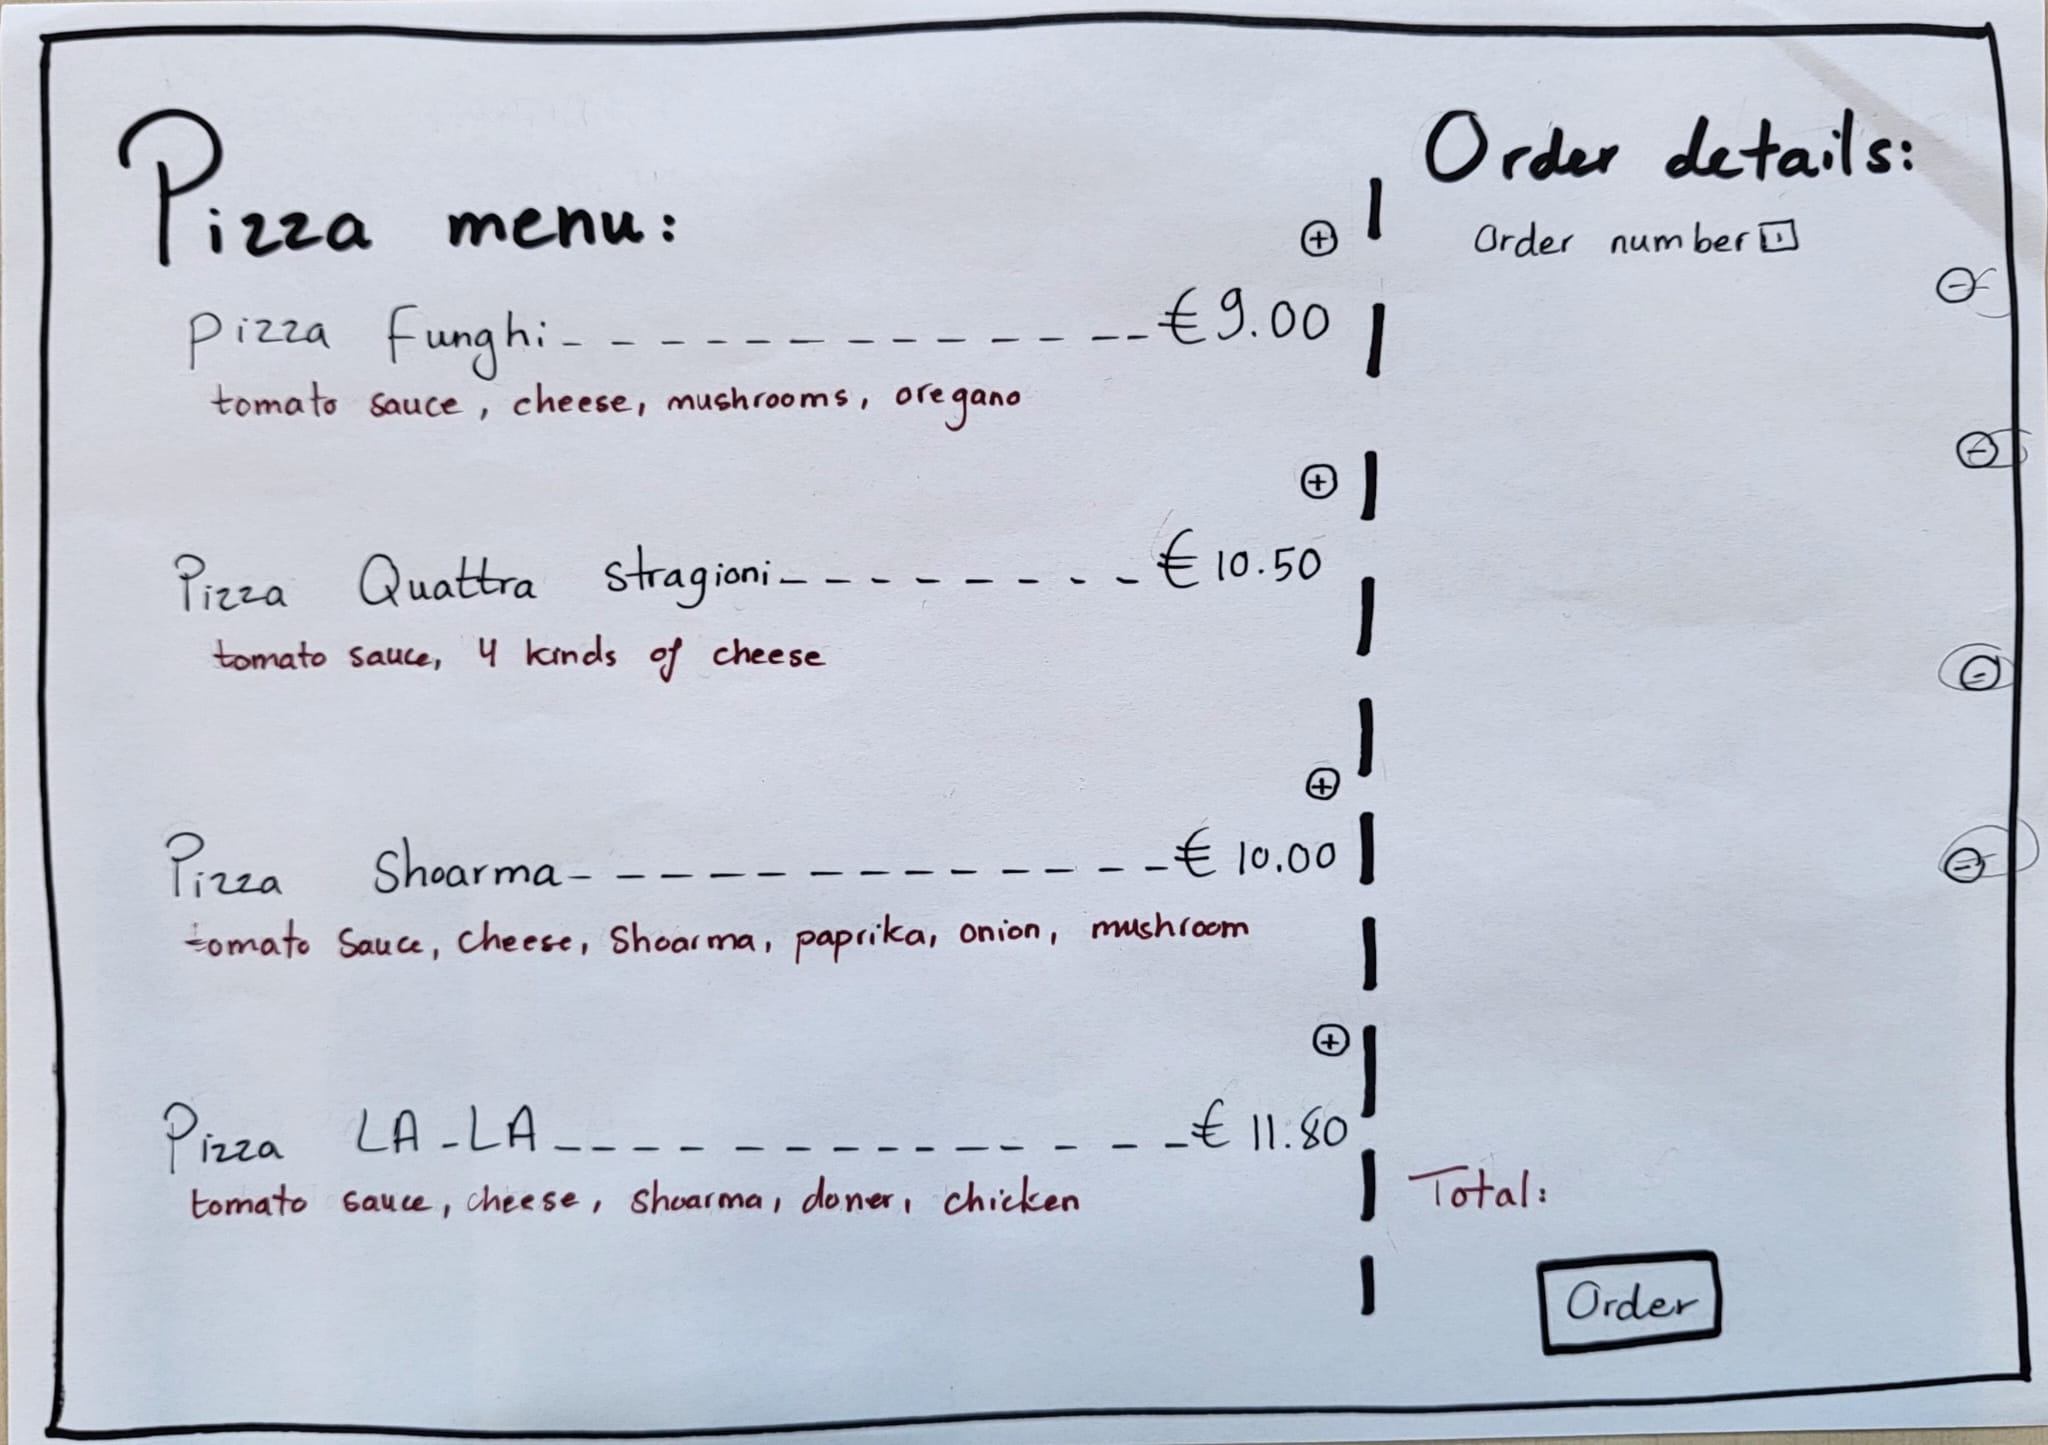 Pizza menu:
⊕
Pizza Funghi - - - - - - - - - - - - - € 9.00
tomato sauce, cheese, mushrooms, oregano
⊕
Pizza Quattra Stragioni - - - - - - - - € 10.50
tomato sauce, 4 kinds of cheese
⊕
Pizza Shoarma - - - - - - - - - - - - - € 10.00
tomato Sauce, Cheese, Shoarma, paprika, onion, mushroom
⊕
Pizza LA-LA - - - - - - - - - - - - - € 11.80
tomato sauce, cheese, shoarma, doner, chicken
Order details:
Order number 1
⊖
⊖
⊖
⊖
Total:
Order